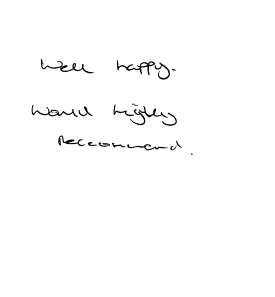 Well happy.
Would highly
Reccommend.